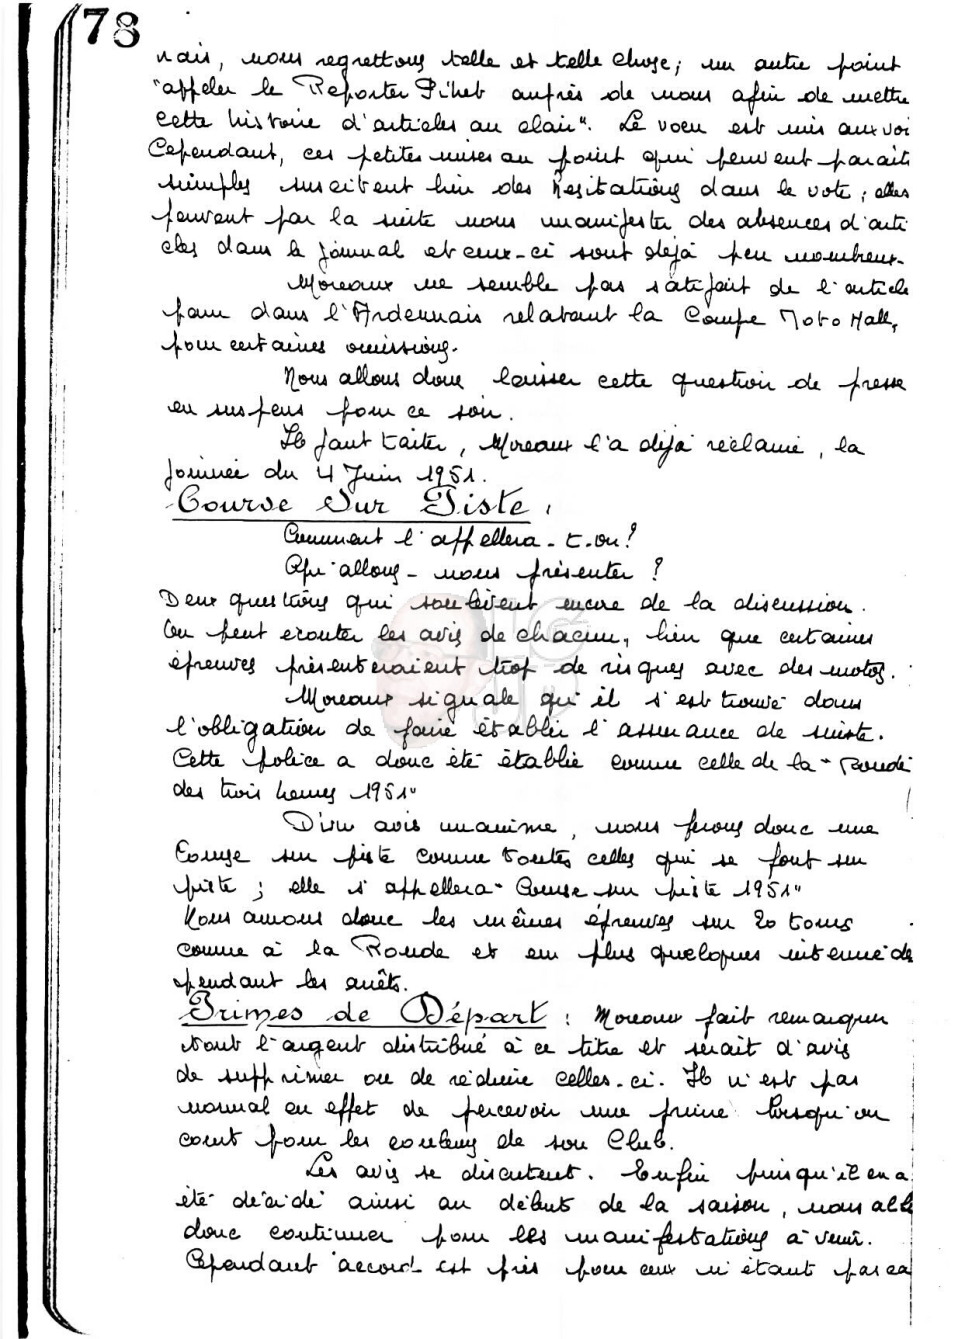 78
nais, nous regrettons telle et telle chose; un autre point
"appeler le Reporter Pihet auprès de nous afin de mettre
cette histoire d'articles au clair". Le voeu est mis aux voi
Cependant, ces petites mises au point qui peuvent parait
simples suscitent bien des hesitations dans le vote; elles
peuvent par la suite nous manifester des absences d'arti
cles dans le journal et ceux-ci sont déjà peu nombreux.
Moreaux ne semble pas satisfait de l'article
paru dans l'Ardennais relatant la Coupe Moto Hall,
pour certaines omissions.
Nous allons donc laisser cette question de presse
en suspens pour ce soir.
Il faut traiter, Moreaux l'a déjà réclamé, la
journée du 4 Juin 1951.
Course Sur Piste :
Comment l'appellera-t-on?
Qu'allons-nous présenter ?
Deux questions qui soulèvent encore de la discussion.
On peut ecouter les avis de chacun, bien que certaines
épreuves présenteraient trop de risques avec des motos.
Moreaux signale qu'il s'est trouvé dans
l'obligation de faire établir l'assurance de suite.
Cette police a donc été établie comme celle de la "Ronde
des trois heures 1951"
D'un avis unanime, nous ferons donc une
Course sur piste comme toutes celles qui se font sur
piste; elle s'appellera "Course sur piste 1951"
Nous aurons donc les mêmes épreuves sur 20 tours
comme à la Ronde et en plus quelques intermède
pendant les arrêts.
Primes de Départ : Moreaux fait remarquer
tout l'argent distribué à ce titre et serait d'avis
de supprimer ou de réduire celles-ci. Il n'est pas
normal en effet de percevoir une prime lorsqu'on
court pour les couleurs de son Club.
Les avis se discutent. Enfin puisqu'il en a
été décidé ainsi au début de la saison, nous all
donc continuer pour les manifestations à venir.
Cependant accord est pris pour ceux n'étant pas ca